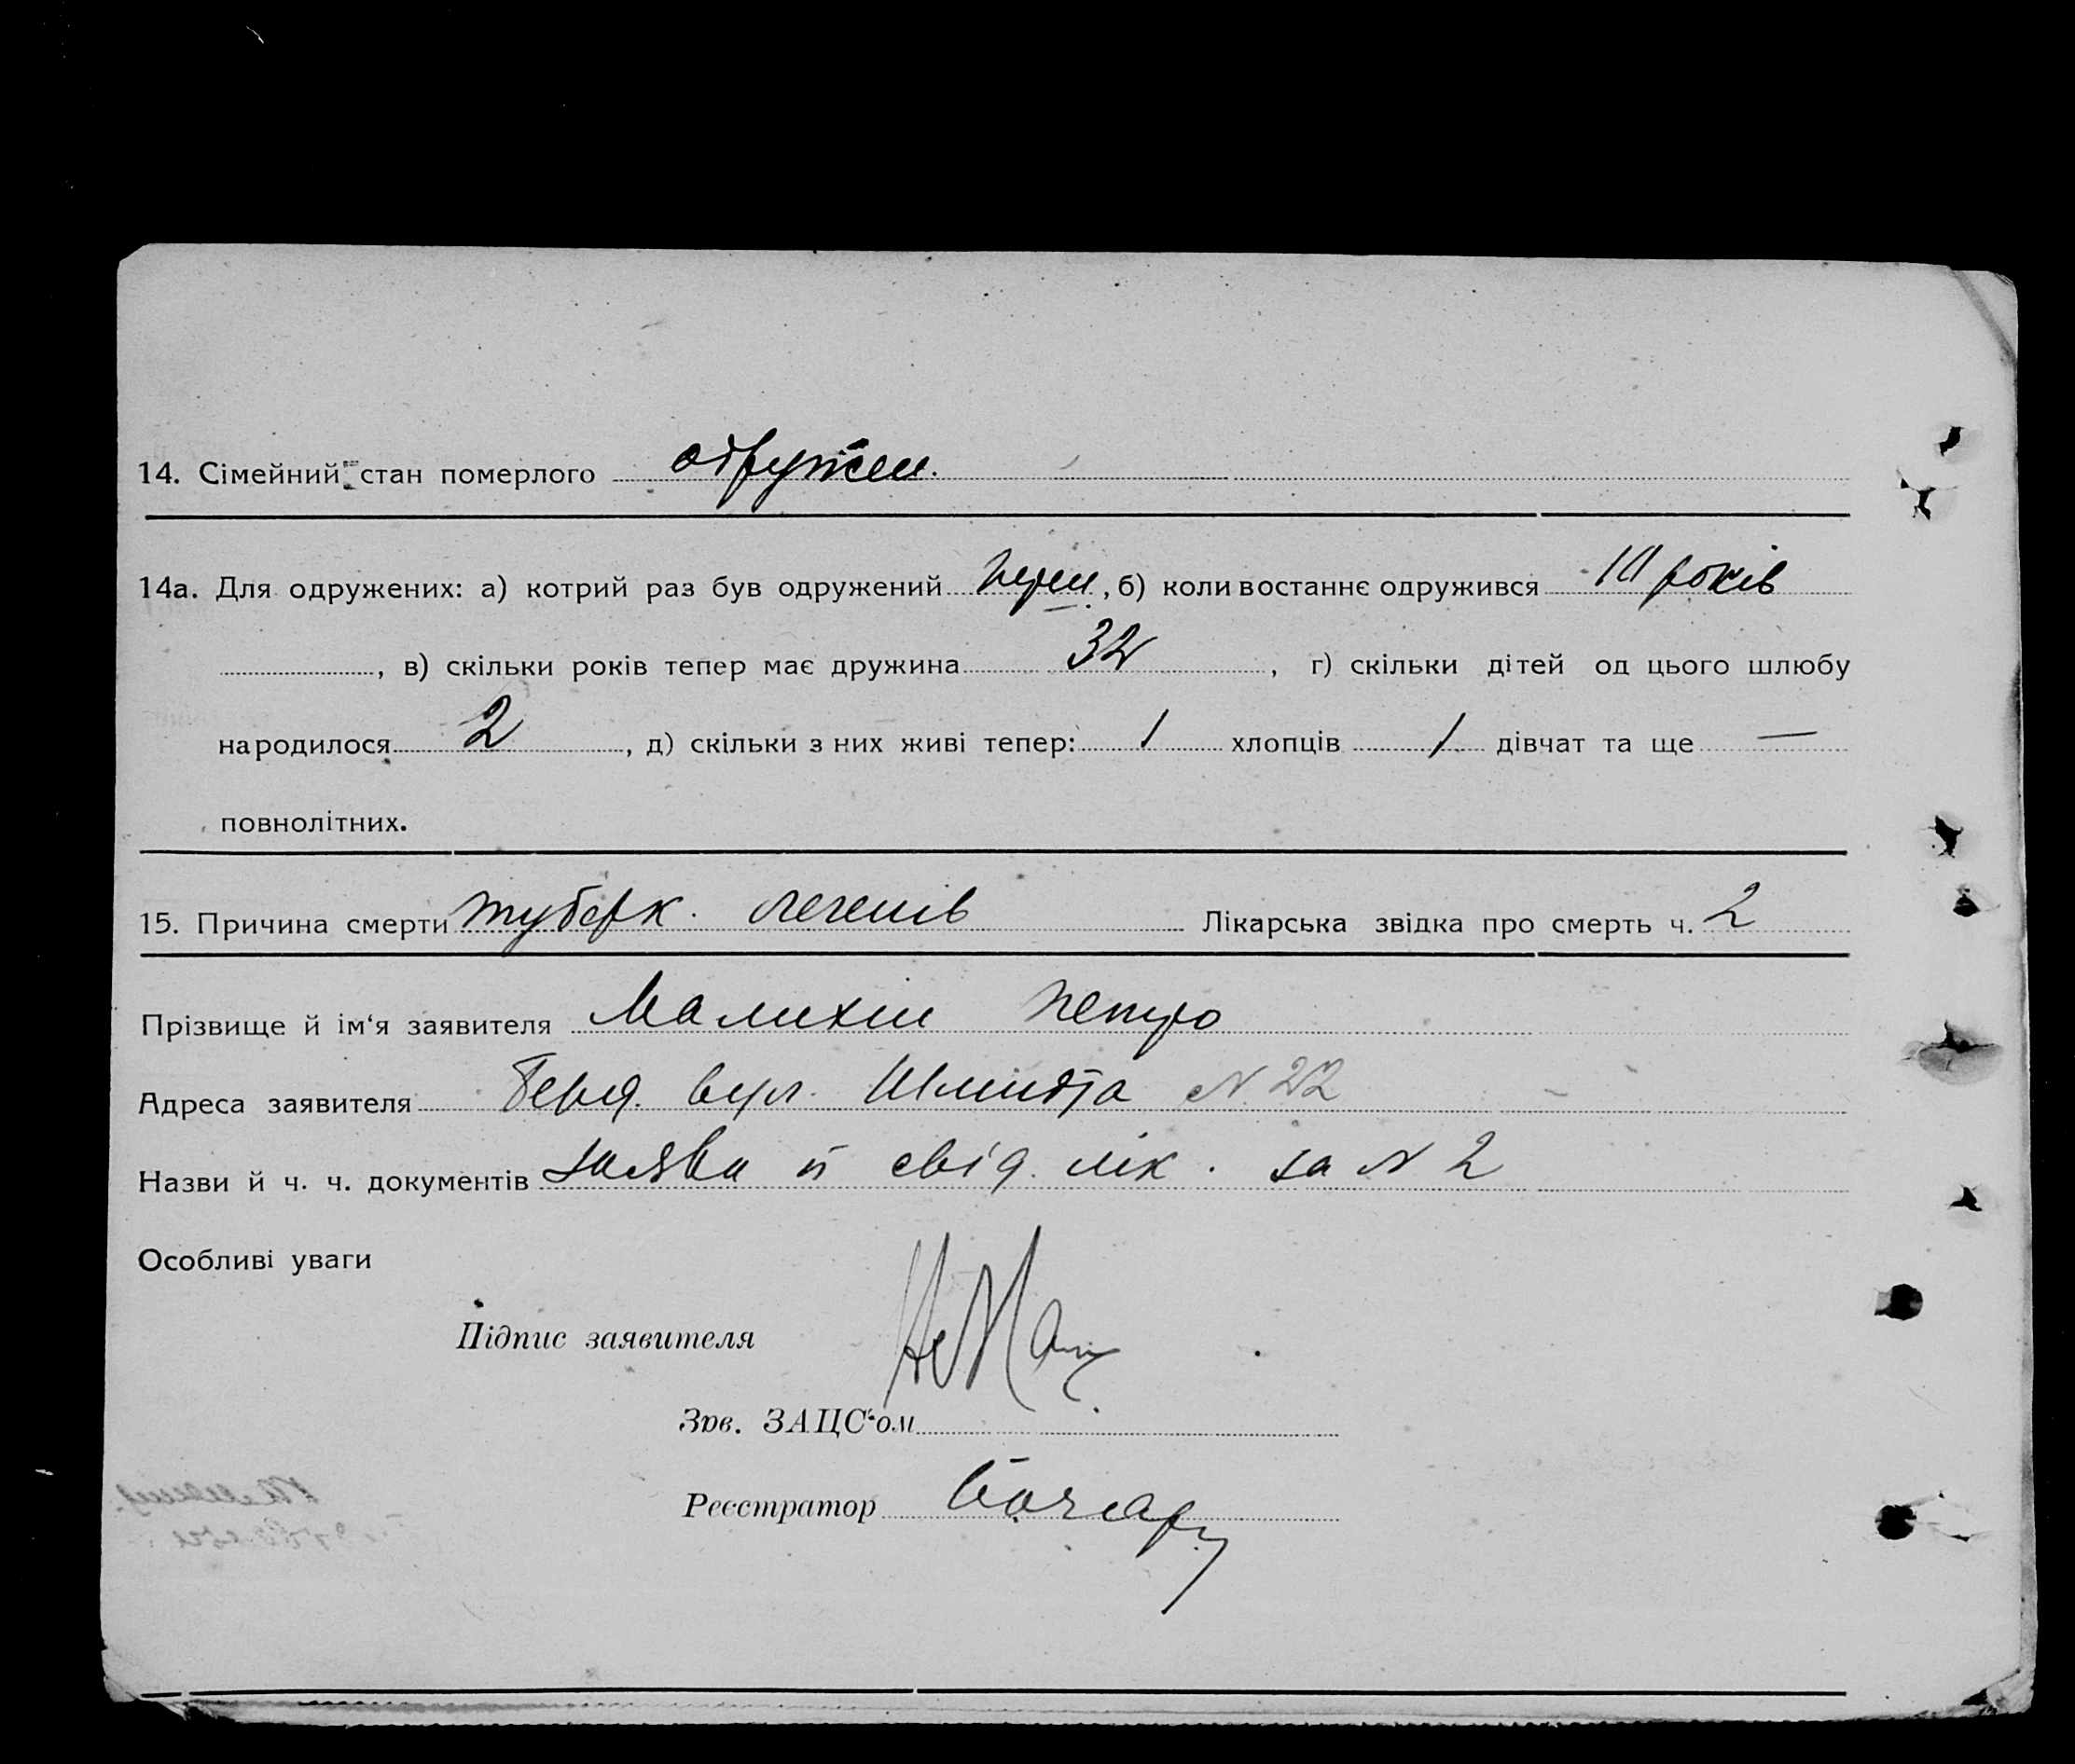 14. Сімейний стан померлого одружен.
14а. Для одружених: а) котрий раз був одружений перш, б) коли востаннє одружився 10 років
, в) скільки років тепер має дружина 32, г) скільки дітей од цього шлюбу
народилося 2, д) скільки з них живі тепер: 1 хлопців 1 дівчат та ще —
повнолітних.
15. Причина смерти туберк. легенів Лікарська звідка про смерть ч. 2
Прізвище й ім‘я заявителя Малихін Петро
Адреса заявителя Берд. вул. Шмидта N 22
Назви й ч. ч. документів заява й свід. лік. за N 2
Особливі уваги
Підпис заявителя
Зав. ЗАЦС‘ом
Реєстратор